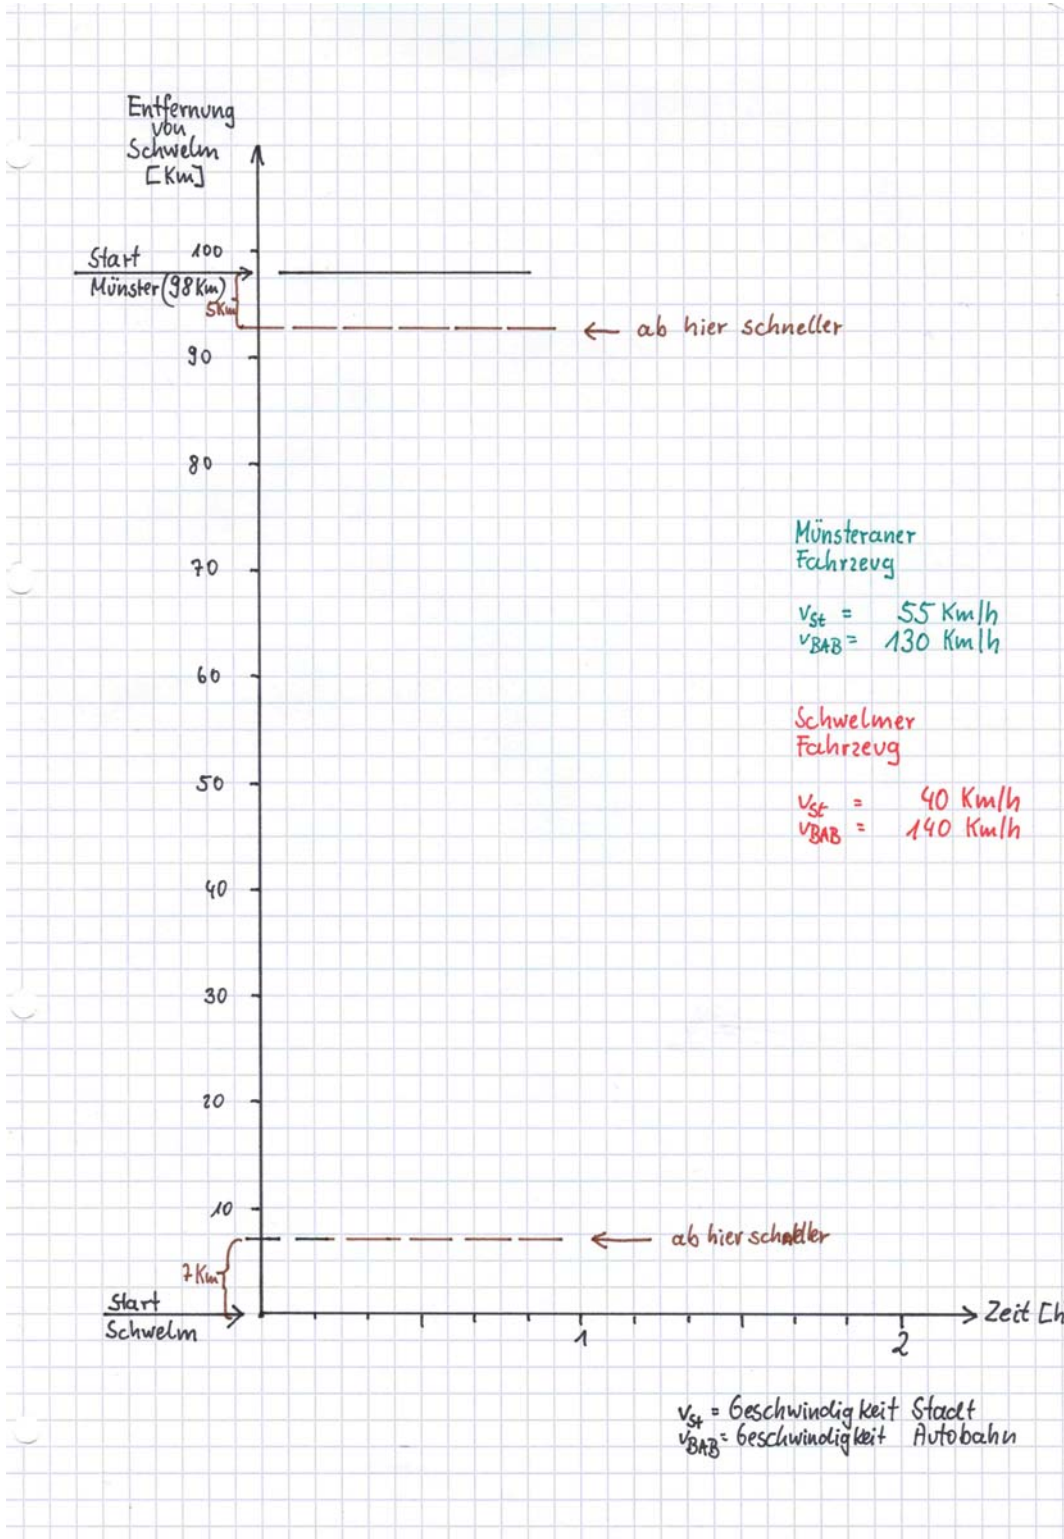 Entfernung
von
Schwelm
[Km]
Start
Münster (98 Km)
100
5Km
ab hier schneller
90
80
Münsteraner
Fahrzeug
70
vSt = 55 Km/h
vBAB = 130 Km/h
60
Schwelmer
Fahrzeug
50
vSt = 40 Km/h
vBAB = 140 Km/h
40
30
20
10
ab hier schneller
7Km
Start
Schwelm
Zeit [h
1
2
vSt = Geschwindigkeit Stadt
vBAB = Geschwindigkeit Autobahn